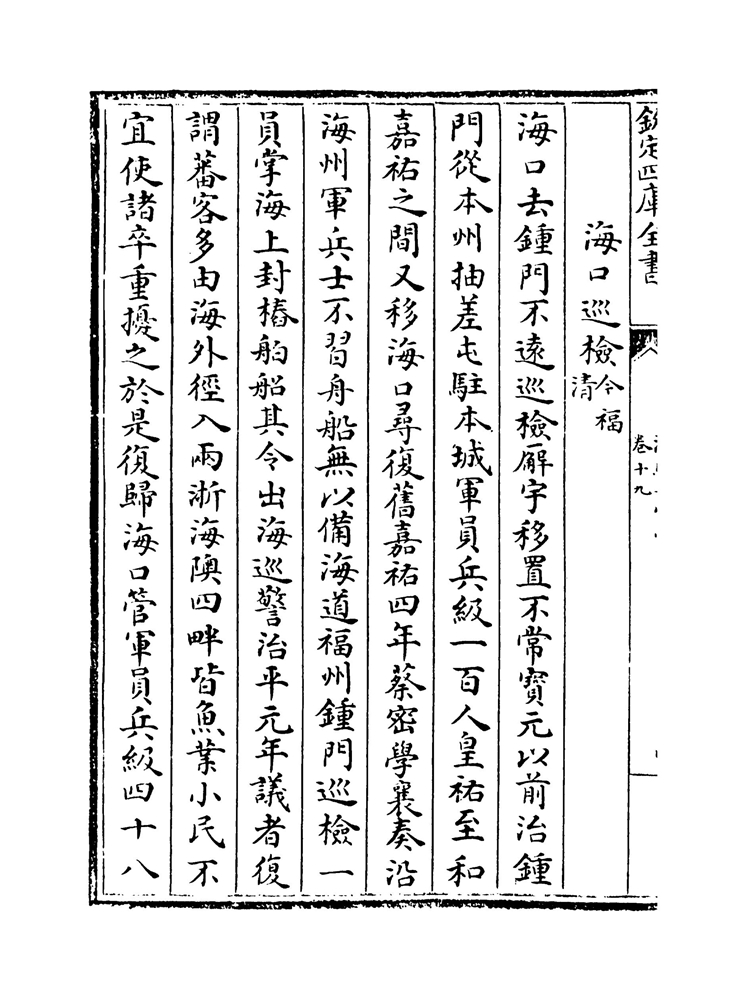 欽定四庫全書
卷十九
海口巡檢今福清
海口去鍾門不遠巡檢廨宇移置不常寶元以前治鍾
門從本州抽差屯駐本城軍員兵級一百人皇祐至和
嘉祐之間又移海口尋復舊嘉祐四年蔡密學襄奏沿
海州軍兵士不習舟船無以備海道福州鍾門巡檢一
員掌海上封樁舶船其令出海巡警治平元年議者復
謂蕃客多由海外徑入兩浙海隩四畔皆魚業小民不
宜使諸卒重擾之於是復歸海口管軍員兵級四十八